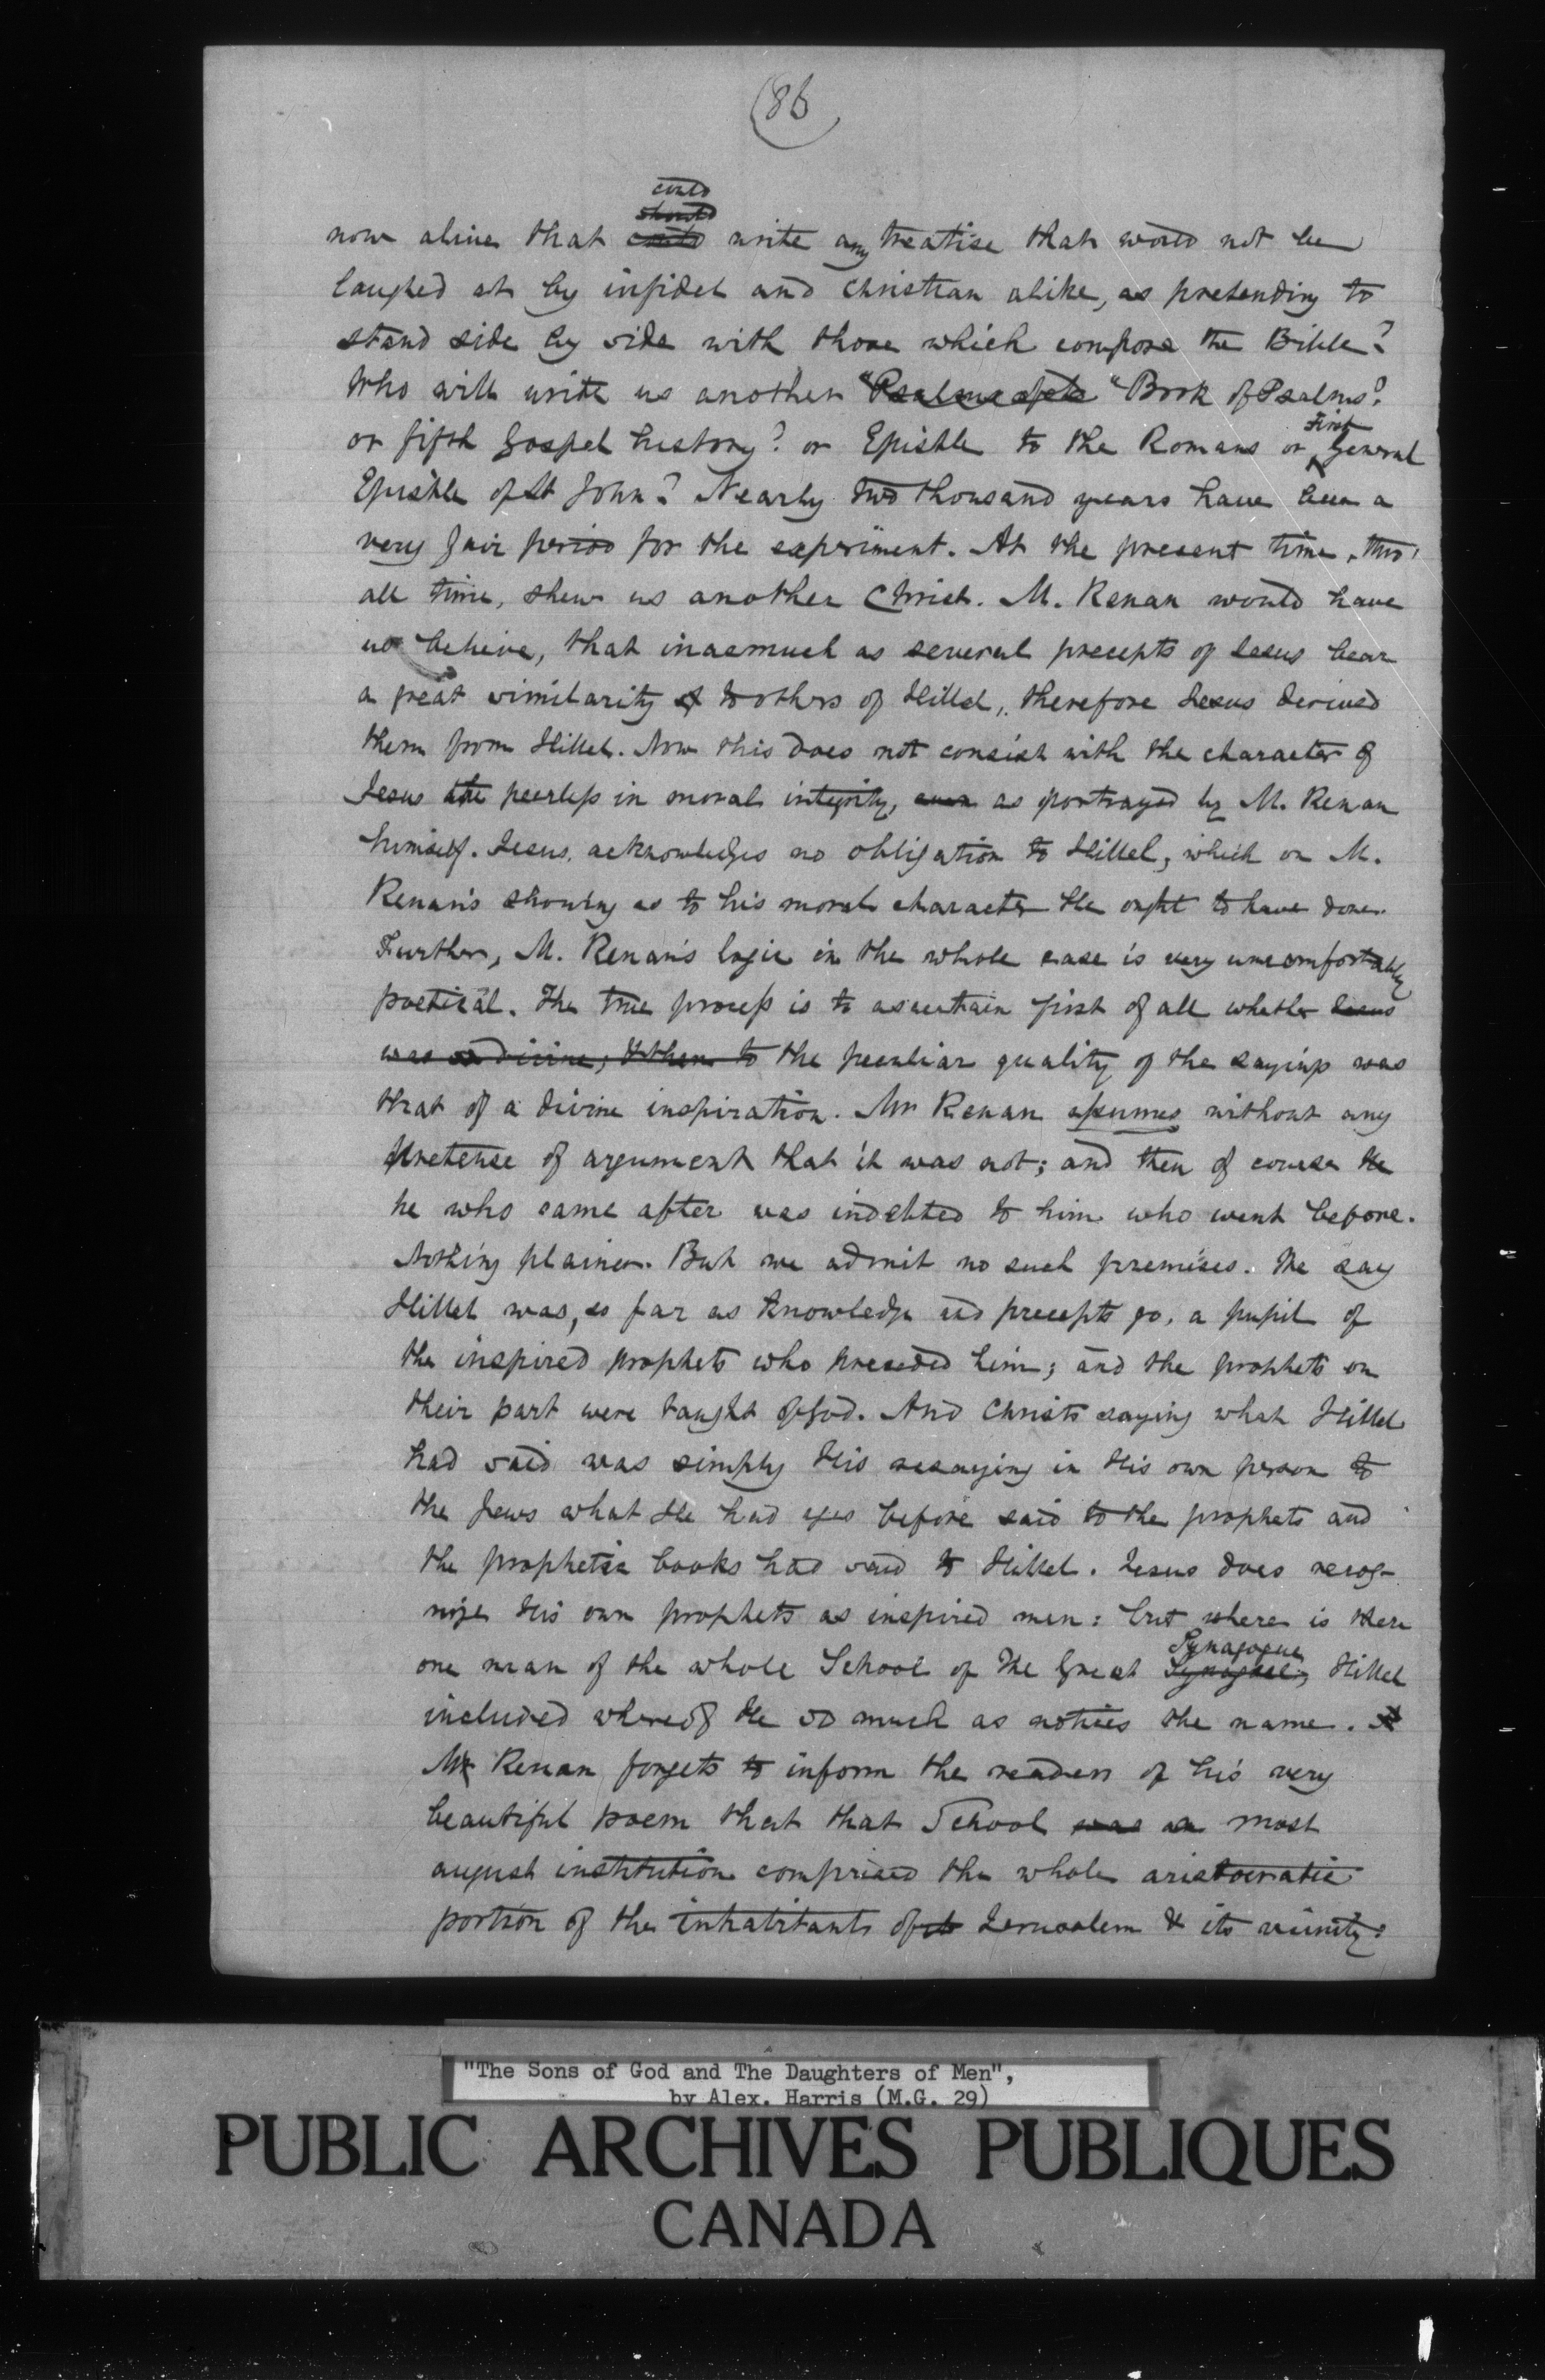 (86)
could
should
now alive that could write any treatise that would not be
laughed at by infidel and christian alike, as pretending to
stand side by side with those which compose the Bible?
Who will write us another "Psalms of "Book of Psalms?
First
or fifth Gospel history? or Epistle to the Romans or General
Epistle of St John? Nearly two thousand years have been a
very fair period for the experiment. At the present time, thro'
all time, shew us another Christ. M. Renan would have
us believe, that inasmuch as several precepts of Jesus bear
a great similarity to others of Hillel, therefore Jesus derived
them from Hillel. Now this does not consist with the character of
Jesus the peerless in moral integrity, even as portrayed by M. Renan
himself. Jesus acknowledges no obligation to Hillel, which on M.
Renan's showing as to his moral character He ought to have done.
Further, M. Renan's logic in the whole case is very uncomfortably
poetical. The true process is to ascertain first of all whether Jesus
was divine; & then to the peculiar quality of the sayings was
that of a divine inspiration. Mr Renan assumes without any
pretense of argument that it was not; and then of course He
he who came after was indebted to him who went before.
Nothing plainer. But we admit no such premises. We say
Hillel was, so far as knowledge and precepts go, a pupil of
the inspired prophets who preceded him; and the prophets on
their part were taught of God. And Christ's saying what Hillel
had said was simply His resaying in His own person to
the Jews what He had ages before said to the prophets and
the prophetic books had said to Hillel. Jesus does recog-
nize His own prophets as inspired men: but where is there
Synagogue
one man of the whole School of The Great Hillel
included whereof He so much as notices the name.
Mr Renan forgets to inform the readers of his very
beautiful poem that that School was a most
august institution comprised the whole aristocratic
portion of the inhabitants of Jerusalem & its vicinity:
"The Sons of God and The Daughters of Men",
by Alex. Harris (M.G. 29)
PUBLIC ARCHIVES PUBLIQUES
CANADA